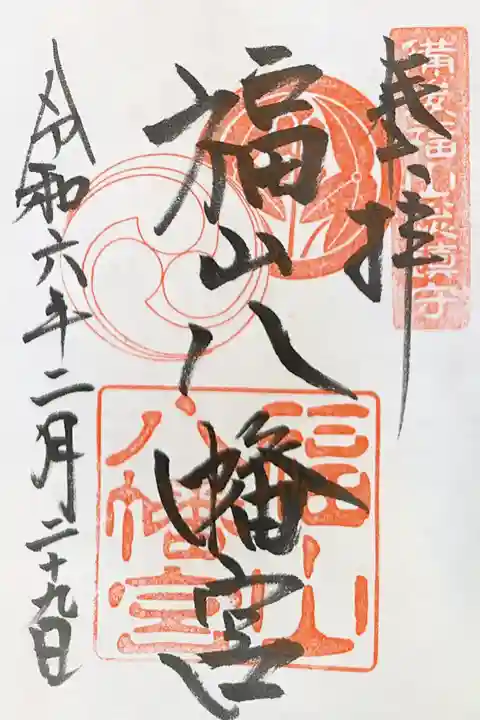 備後福山鎮守
奉拝
福山八幡宮
福山
八幡宮
令和六年二月二十九日